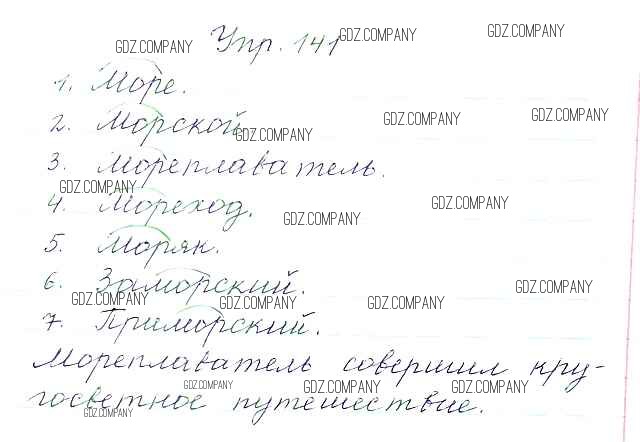 GDZ.COMPANY Упр. 141 GDZ.COMPANY GDZ.COMPANY
1. Море.
2. Морской. GDZ.COMPANY GDZ.COMPANY GDZ.COMPANY
3. Мореплаватель.
GDZ.COMPANY
4. Мореход. GDZ.COMPANY GDZ.COMPANY
5. Моряк.
6. Заморский. GDZ.COMPANY
GDZ.COMPANY GDZ.COMPANY GDZ.COMPANY
7. Приморский.
Мореплаватель совершил кру-
GDZ.COMPANY GDZ.COMPANY GDZ.COMPANY
госветное путешествие.
GDZ.COMPANY